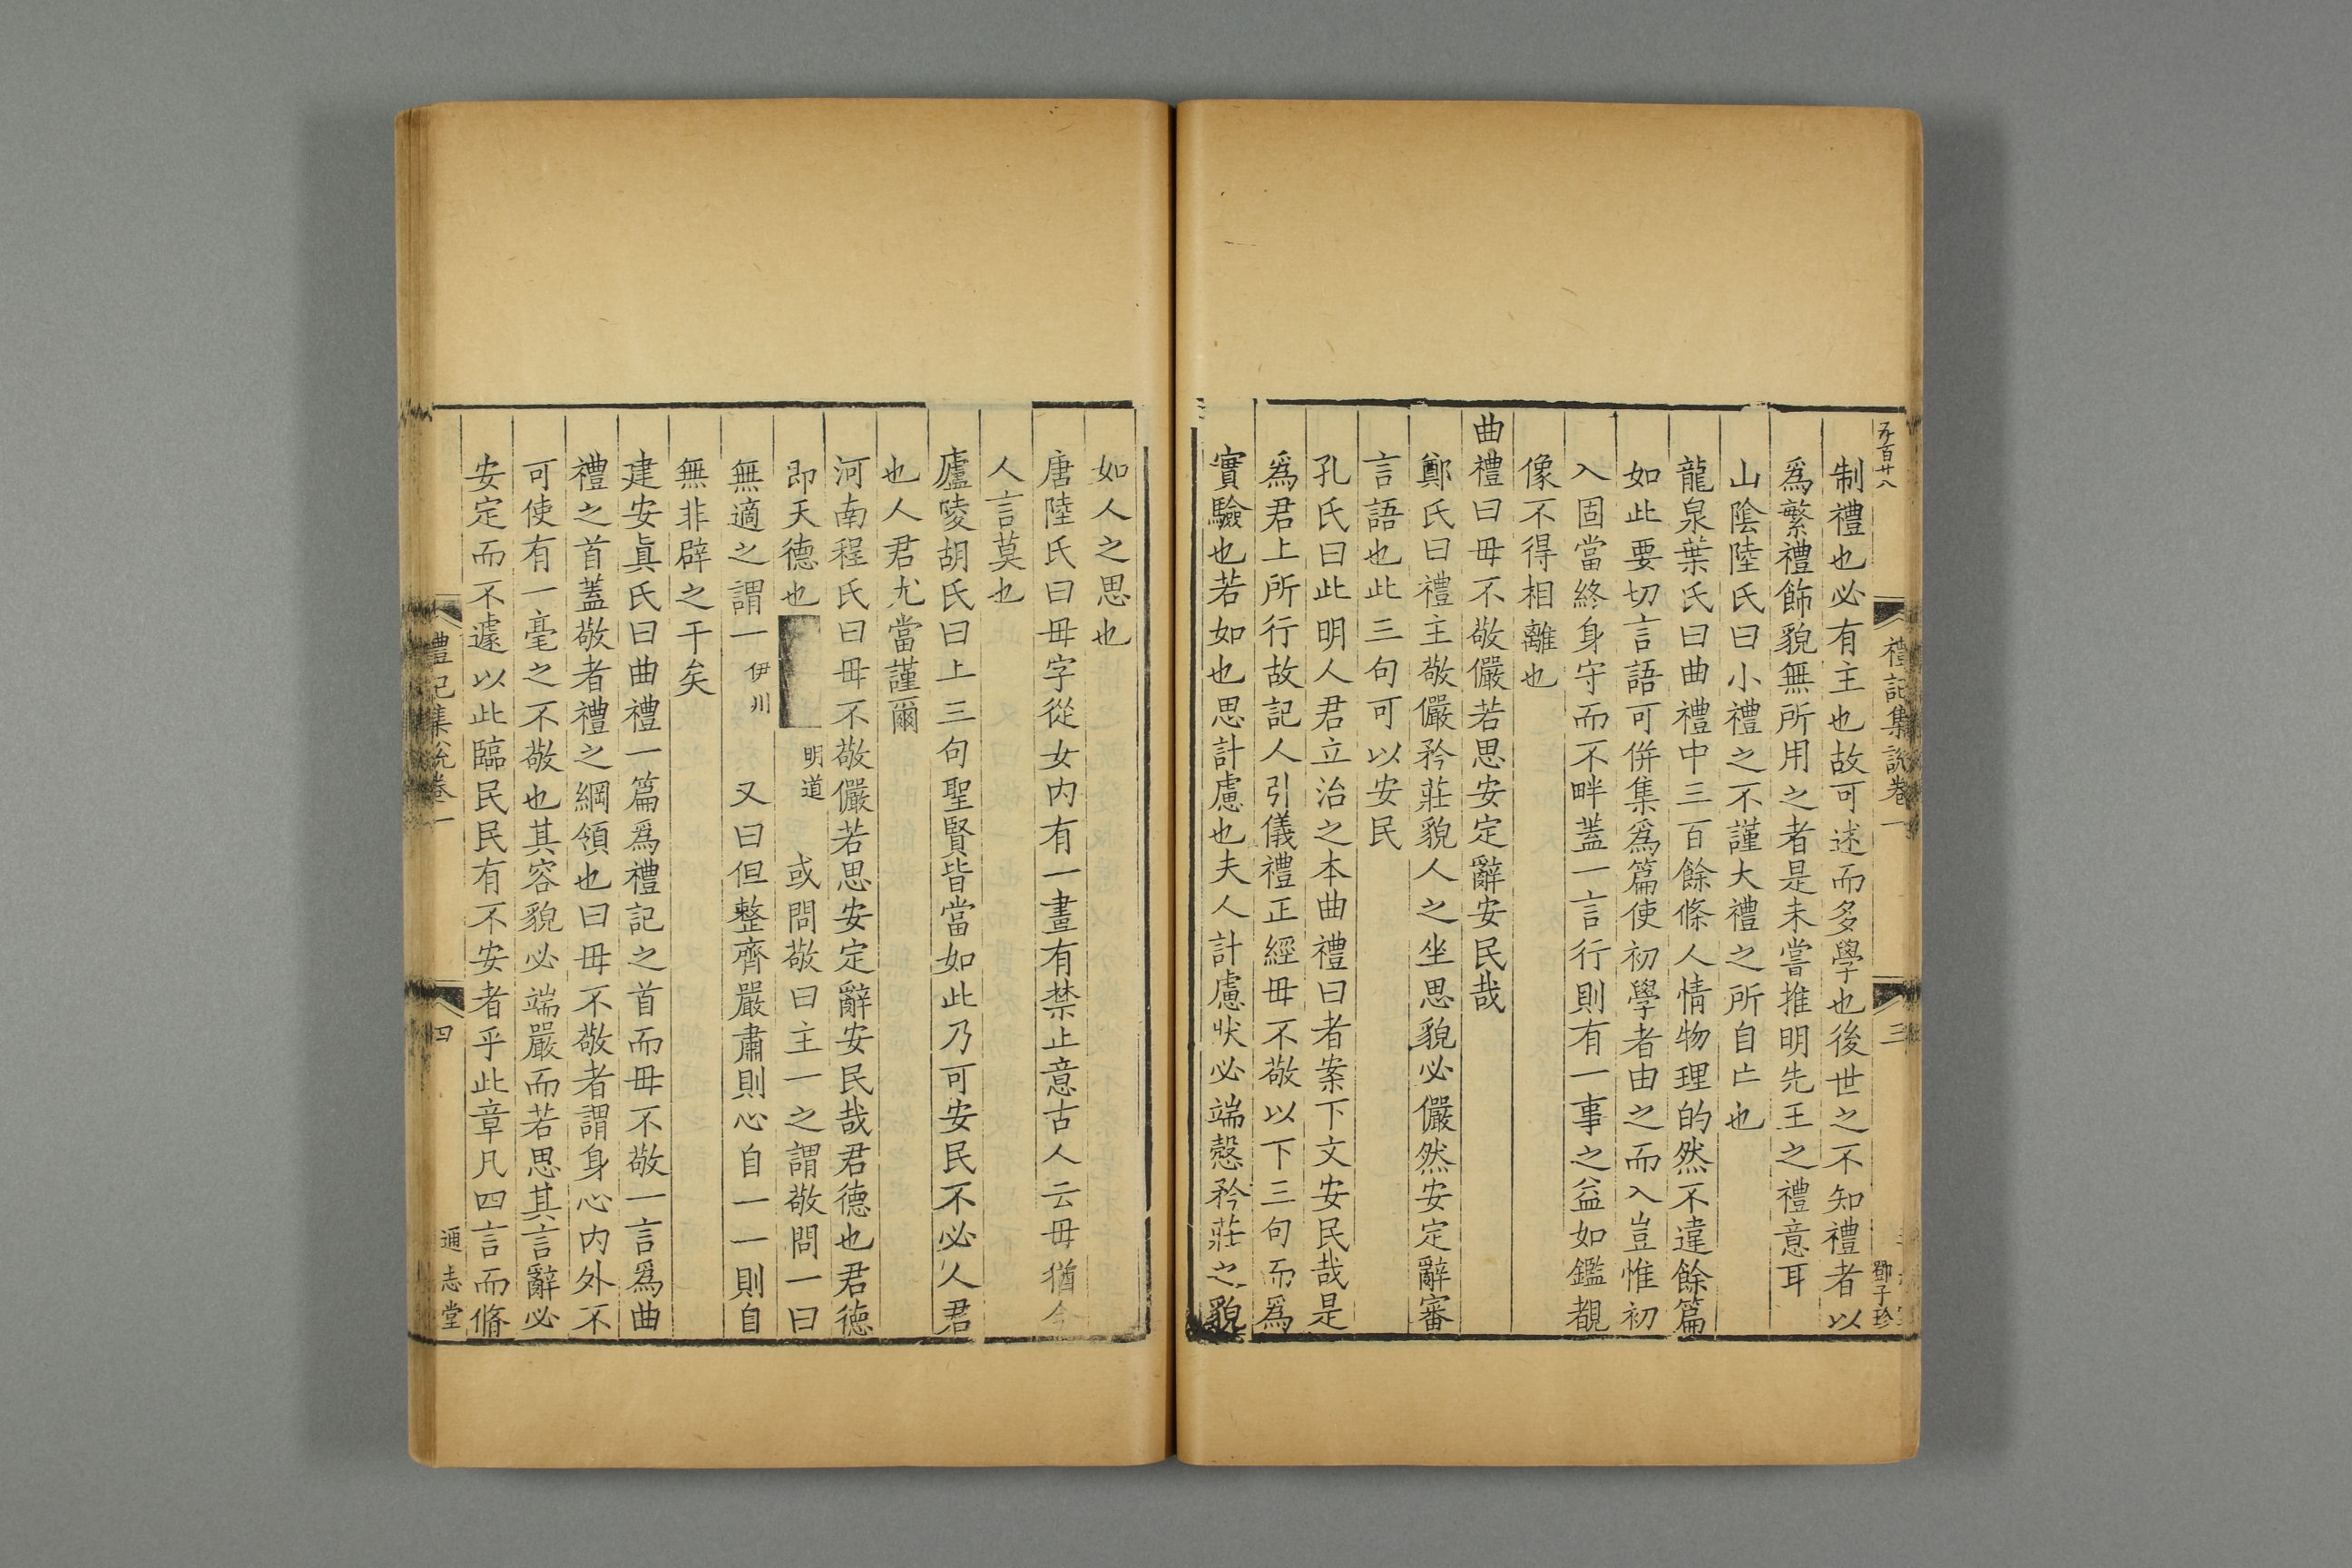 五百廿八
禮記集說卷一
三
鄧子珍
制禮也必有主也故可述而多學也後世之不知禮者以
爲繁禮飾貌無所用之者是未嘗推明先王之禮意耳
山陰陸氏曰小禮之不謹大禮之所自亡也
龍泉葉氏曰曲禮中三百餘條人情物理的然不違餘篇
如此要切言語可併集爲篇使初學者由之而入豈惟初
入固當終身守而不畔蓋一言行則有一事之益如鑑覩
像不得相離也
曲禮曰毋不敬儼若思安定辭安民哉
鄭氏曰禮主敬儼矜莊貌人之坐思貌必儼然安定辭審
言語也此三句可以安民
孔氏曰此明人君立治之本曲禮曰者案下文安民哉是
爲君上所行故記人引儀禮正經毋不敬以下三句而爲
實驗也若如也思計慮也夫人計慮狀必端慤矜莊之貌
如人之思也
唐陸氏曰毋字從女内有一畫有禁止意古人云毋猶今
人言莫也
廬陵胡氏曰上三句聖賢皆當如此乃可安民不必人君
也人君尤當謹爾
河南程氏曰毋不敬儼若思安定辭安民哉君德也君德
即天德也 明道 或問敬曰主一之謂敬問一曰
無適之謂一 伊川 又曰但整齊嚴肅則心自一一則自
無非辟之干矣
建安眞氏曰曲禮一篇爲禮記之首而毋不敬一言爲曲
禮之首蓋敬者禮之綱領也曰毋不敬者謂身心内外不
可使有一毫之不敬也其容貌必端嚴而若思其言辭必
安定而不遽以此臨民民有不安者乎此章凡四言而脩
禮記集說卷一
四
通志堂